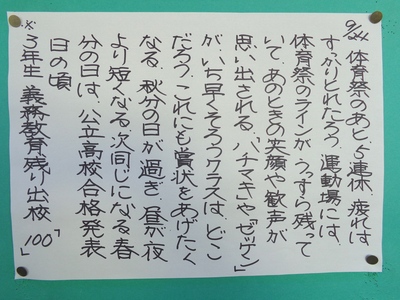 9/24 体育祭のあと5連休、疲れは
すっかりとれたろう、運動場には、
体育祭のラインが、うっすら残って
いて、あのときの笑顔や歓声が
思い出される、「ハチマキ」や「ゼッケン」
が、いち早くそろうクラスは、どこ
だろう、これにも賞状をあげたく
なる、秋分の日が過ぎ、昼が夜
より短くなる、次同じになる春
分の日は、公立高校合格発表
日の頃
※3年生 義務教育残り出校 100「」